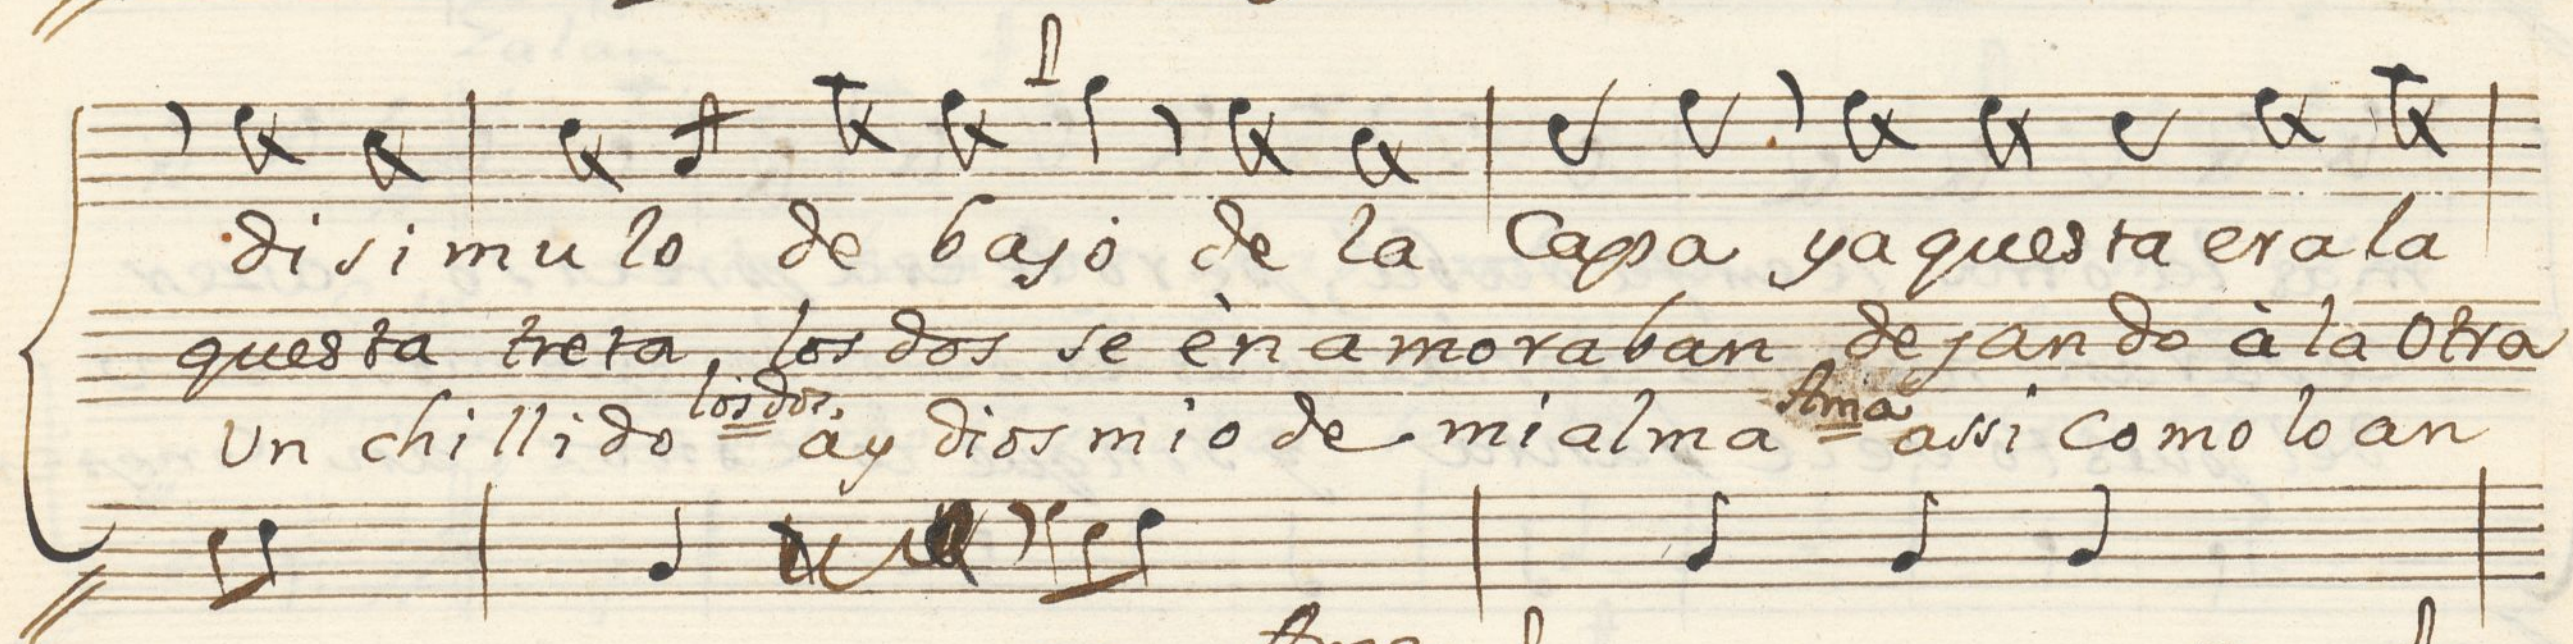 disimulo de bajo de la Capa yaquesta era la
questa treta, los dos se ènamoraban dejando à la Otra
los dos, Ama
Un chillido = ay dios mio de mi alma = assi Como lo an